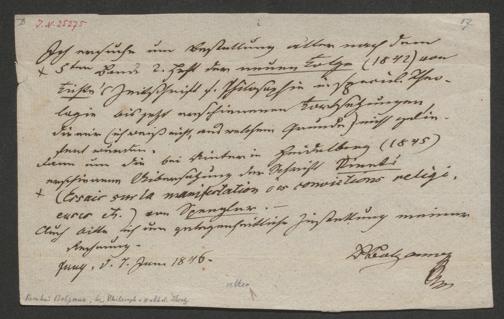 I.N. 25275
17.
Ich ersuche um Bestellung aller nach dem
5ten Band 2. Heft der neuen Folge (1842) von
Fichte's Zeitschrift f. Philosophie u. specul. Theo-
logie bis jetzt erschienenen Fortsetzungen,
die mir (ich weiß nicht, aus welchem Grunde) nicht gelie-
fert wurden.
dann um die bei Winter in Heidelberg (1845)
erschienene Uibersetzung der Schrift Vinets
(Essais sur la manifestation des convictions religi-
euses) von Spengler. —
Auch bitte ich um gelegenheitliche Zustellung meiner
Rechnung. —
d. 7. Juni 1846.
DBolzano